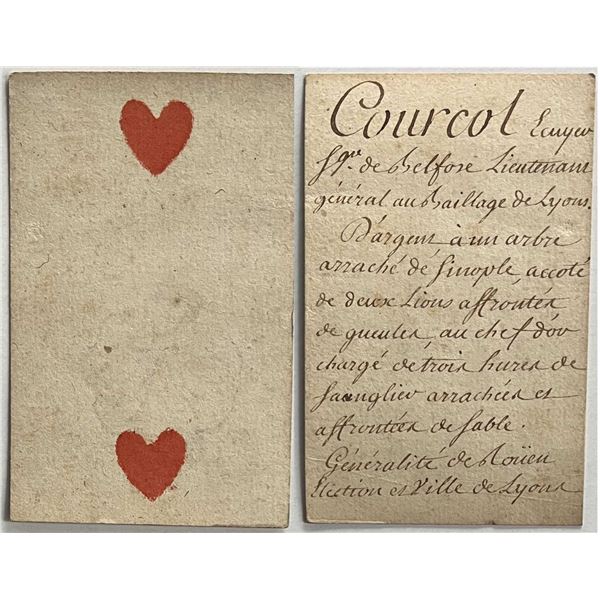 Courcol Ecuyer
Sgr. de Belfosé Lieutenant
général au Baillage de Lyons.
D'argent, à un arbre
arraché de Sinople, accoté
de deux Lions affrontés
de gueules, au chef d'or
chargé de trois hures de
Sanglier arrachées et
affrontées de Sable.
Généralité de Roüen
Election et Ville de Lyons